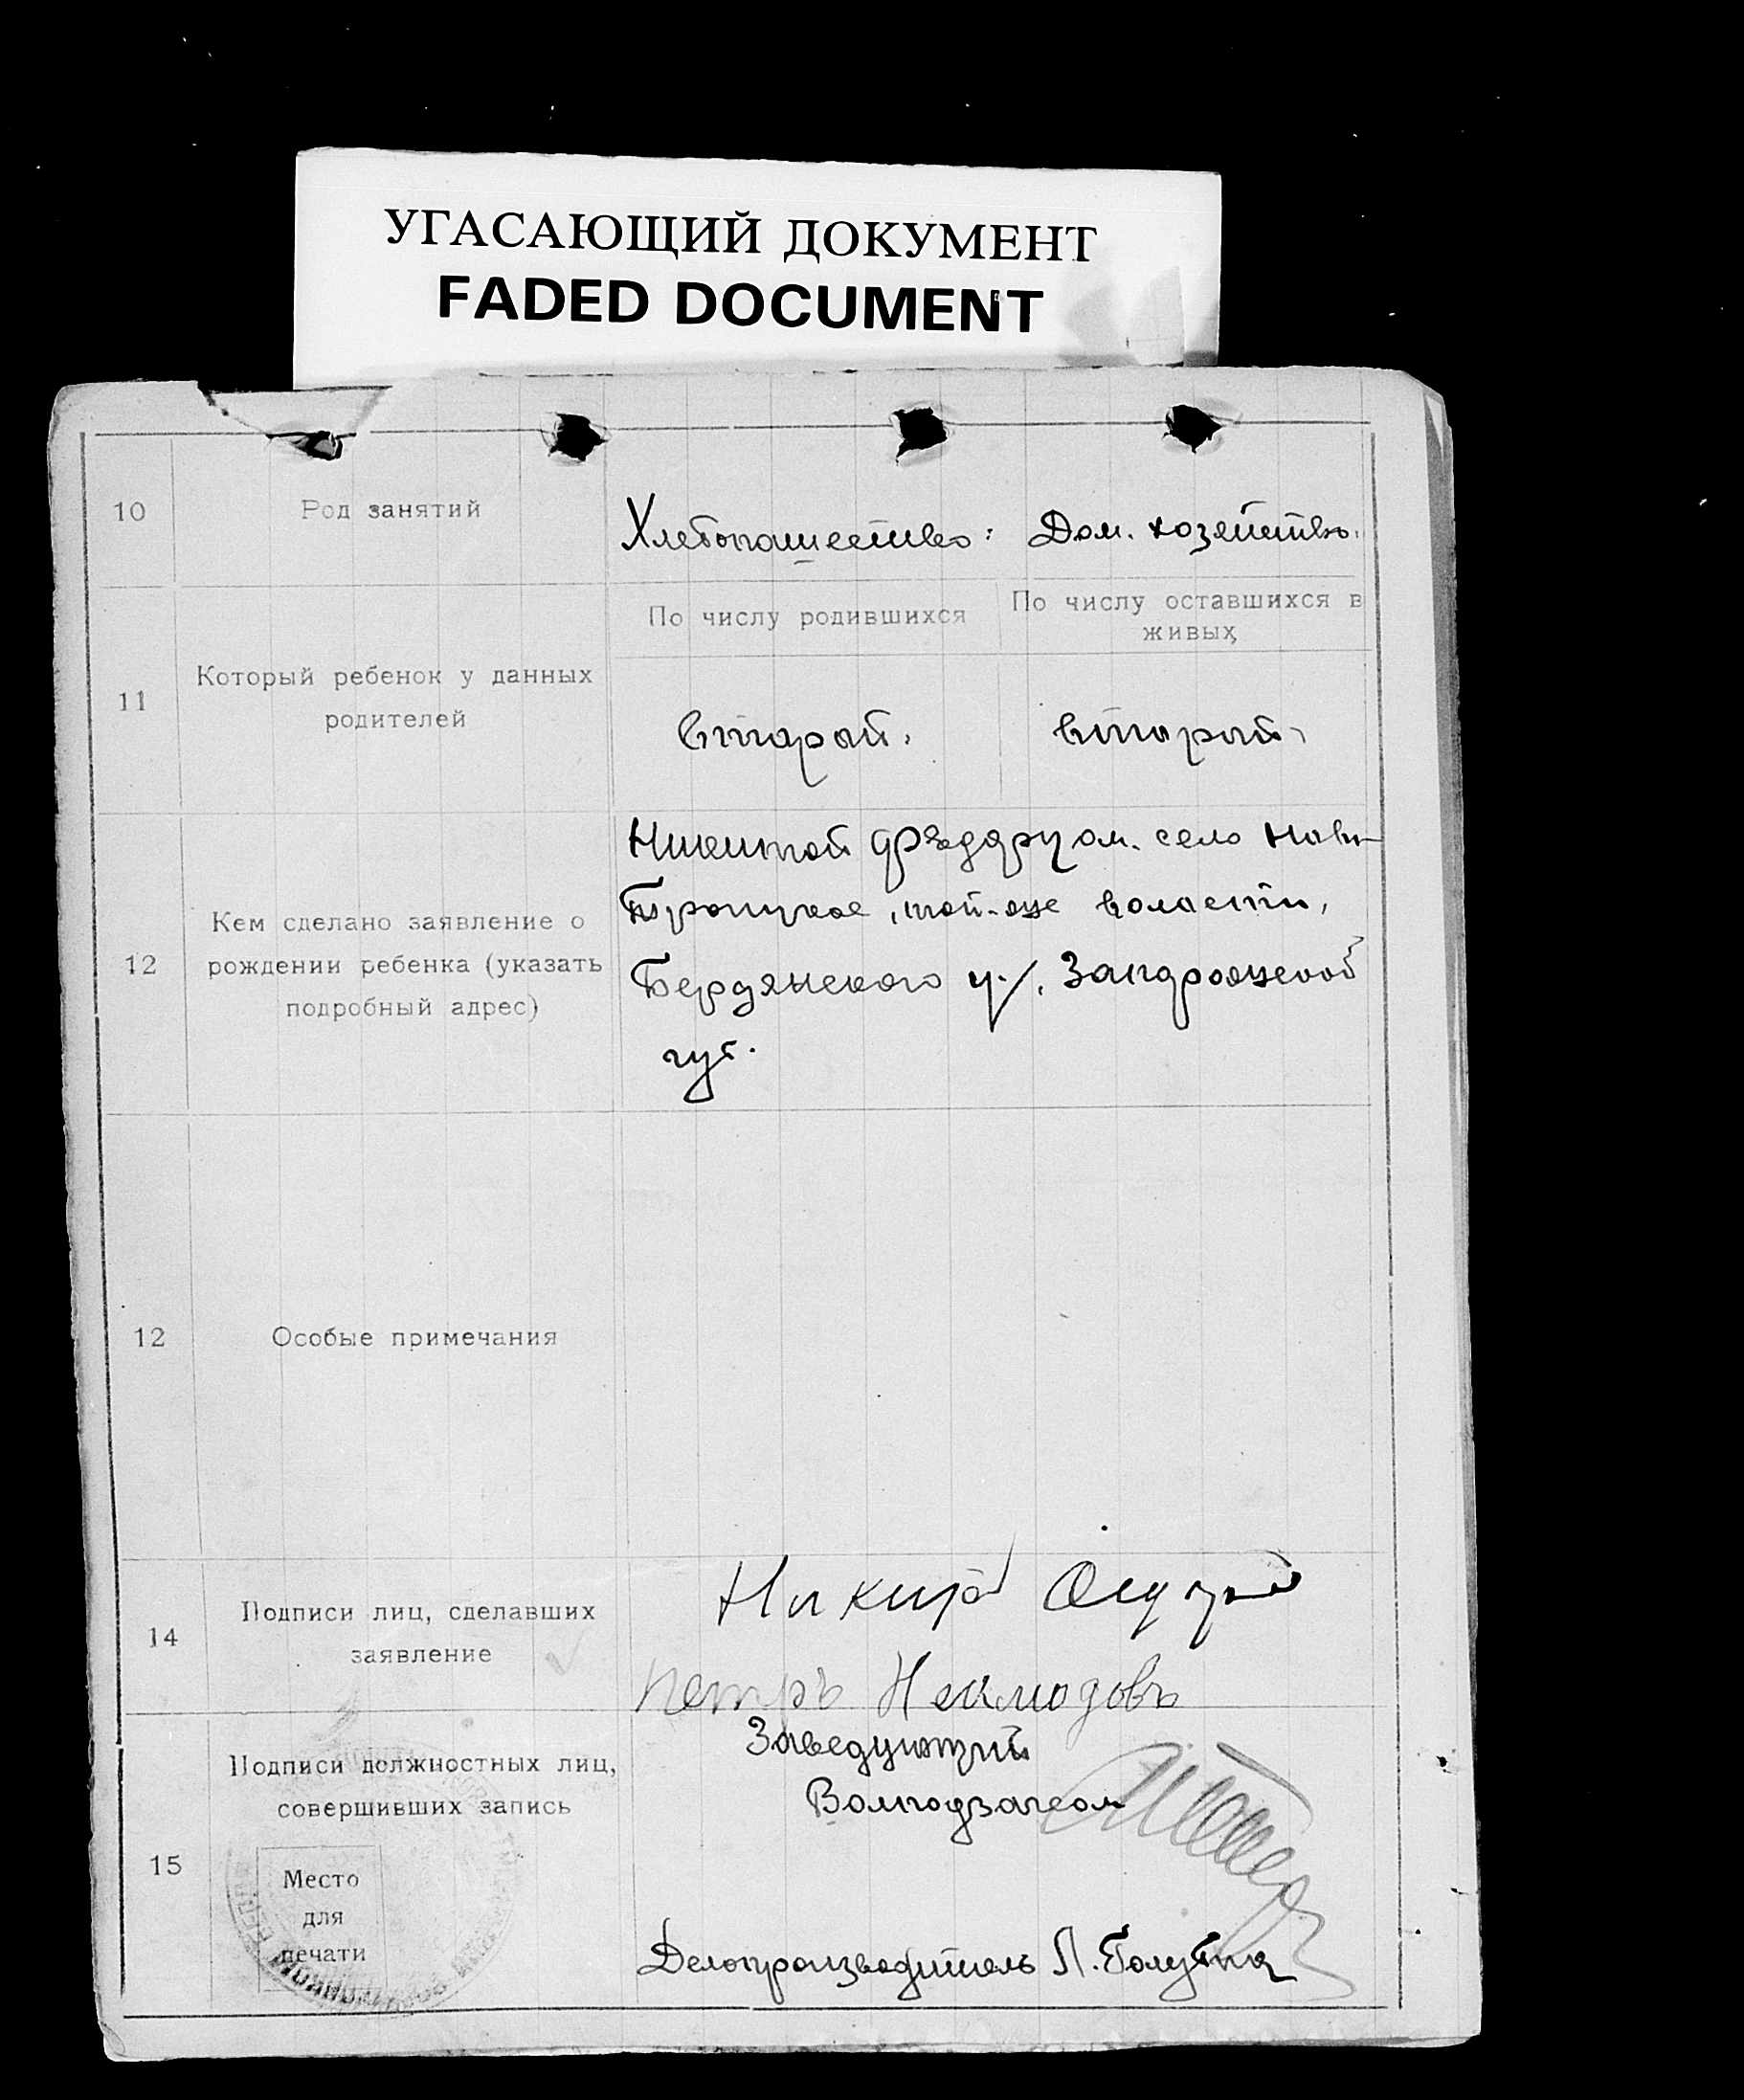 УГАСАЮЩИЙ ДОКУМЕНТ
FADED DOCUMENT
10
Род занятий
Хлебопашество: Дом. хозяйство.
11
Который ребенок у данных
родителей
По числу родившихся
По числу оставшихся в
живых
второй.
второй
12
Кем сделано заявление о
рождении ребенка (указать
подробный адрес)
Никитой село Ново-
Троицкое, той-же воласти,
Бердянского у., Запорожской
губ.
12
Особые примечания
14
Подписи лиц, сделавших
заявление
Петръ
15
Подписи должностных лиц,
совершивших запись
Место
для
печати
Заведующий
Делопроизводитель